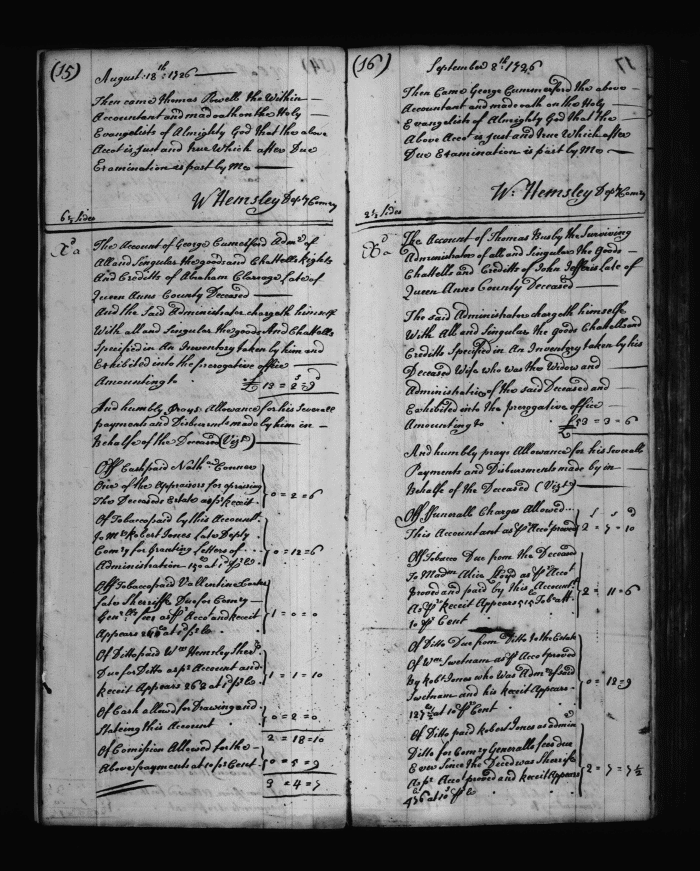 (15)
August: 18th: 1726
Then came Thomas Powell the Within
Accountant and made oath on the Holy
Evangelists of Almighty God that the above
Accot is Just and true Which after Due
Examination is past by Me
W Hemsley Depty Comry
6½ Sides
The Account of George Cumerford Admr of
All and Singular the goods and Chattells Rights
And Creditts of Abraham Clarvoge late of
Queen Anns County Deceased
And the Said Administrator chargeth himself
With all and Singular the goods And Chattells
Specified in An Inventory taken by him and
Exhibited into the prerogative office
Amounting to £ 13 = 2 = 9
And humbly prays Allowance for his Severall
payments and Disbursmts made by him in
Behalfe of the Deceased (Vizt)
Off Cash paid Nathan Connor
One of the Appraisors for apraising
The Deceaseds Estate as pr receit 0 = 2 = 6
Of Tobacco paid by this Accountt
To Mr Robert Jones late Depty
Comry for Granting Letters of
Administration 150 at 1d pr lb 0 = 12 = 6
Off Tobacco paid Vallentine Carter
late Sherriffe Due for Comry
Genlls fees as pr Accot and receit
Appears 240 at 1d pr lb 1 = 0 = 0
Of Ditto paid Wm Hemsley Sher
Due for Ditto as pr Account and
Receit Appears 262 at 1d pr lb 1 = 1 = 10
Of Cash allowd for Drawing and
Stateing this Account 0 = 2 = 0
2 = 18 = 10
Of Comission Allowed for the
Above payments at 10 pr Cent 0 = 5 = 9
3 = 4 = 7
(16)
17
September 8th 1726
Then Came George Cummerford the above
Accountant and made oath on the Holy
Evangelists of Almighty God that the
Above Accot is Just and true Which after
Due Examination is past by Me
W: Hemsley Depty Comry
2½ Sides
The Account of Thomas Busby the Surviving
Administrator of all and Singular the Goods
Chattells and Creditts of John Jefferis late of
Queen Anns County Deceased
The Said Administrator chargeth himselfe
With All and Singular the goods Chattells and
Creditts Specified in An Inventory taken by his
Deceased Wife who was the Widow and
Administratrix of the Said Deceased and
Exhibited into the prerogative office
Amounting to £53 = 3 = 6
And humbly prays Allowance for his Severall
Payments and Disbursments made by in
Behalfe of the Deceased (Vizt)
Off Funerall Charges Allowed
This Accountant as pr Accot proved 2 = 7 = 10
Off Tobacco Due from the Deceased
To Madm Alice Lloyd as pr Accot
proved and paid by this Accountt
As pr Receit Appears 515 Tob att
10 pr Cent 2 = 11 = 6
Of Ditto Due from Ditto to the Estate
Of Wm Swetnam as pr Accot proved
By Robt Jones who Was Admr of said
Swetnam and his Receit Appears
127½ at 10 pr Cent 0 = 12 = 9
Of Ditto paid Robert Jones as admin
Ditto for Comry Generalls fees due
Ever Since the Deced was Sherriffe
As pr Accot proved and Receit Appears
476 at 10 pr 2 = 7 = 7½